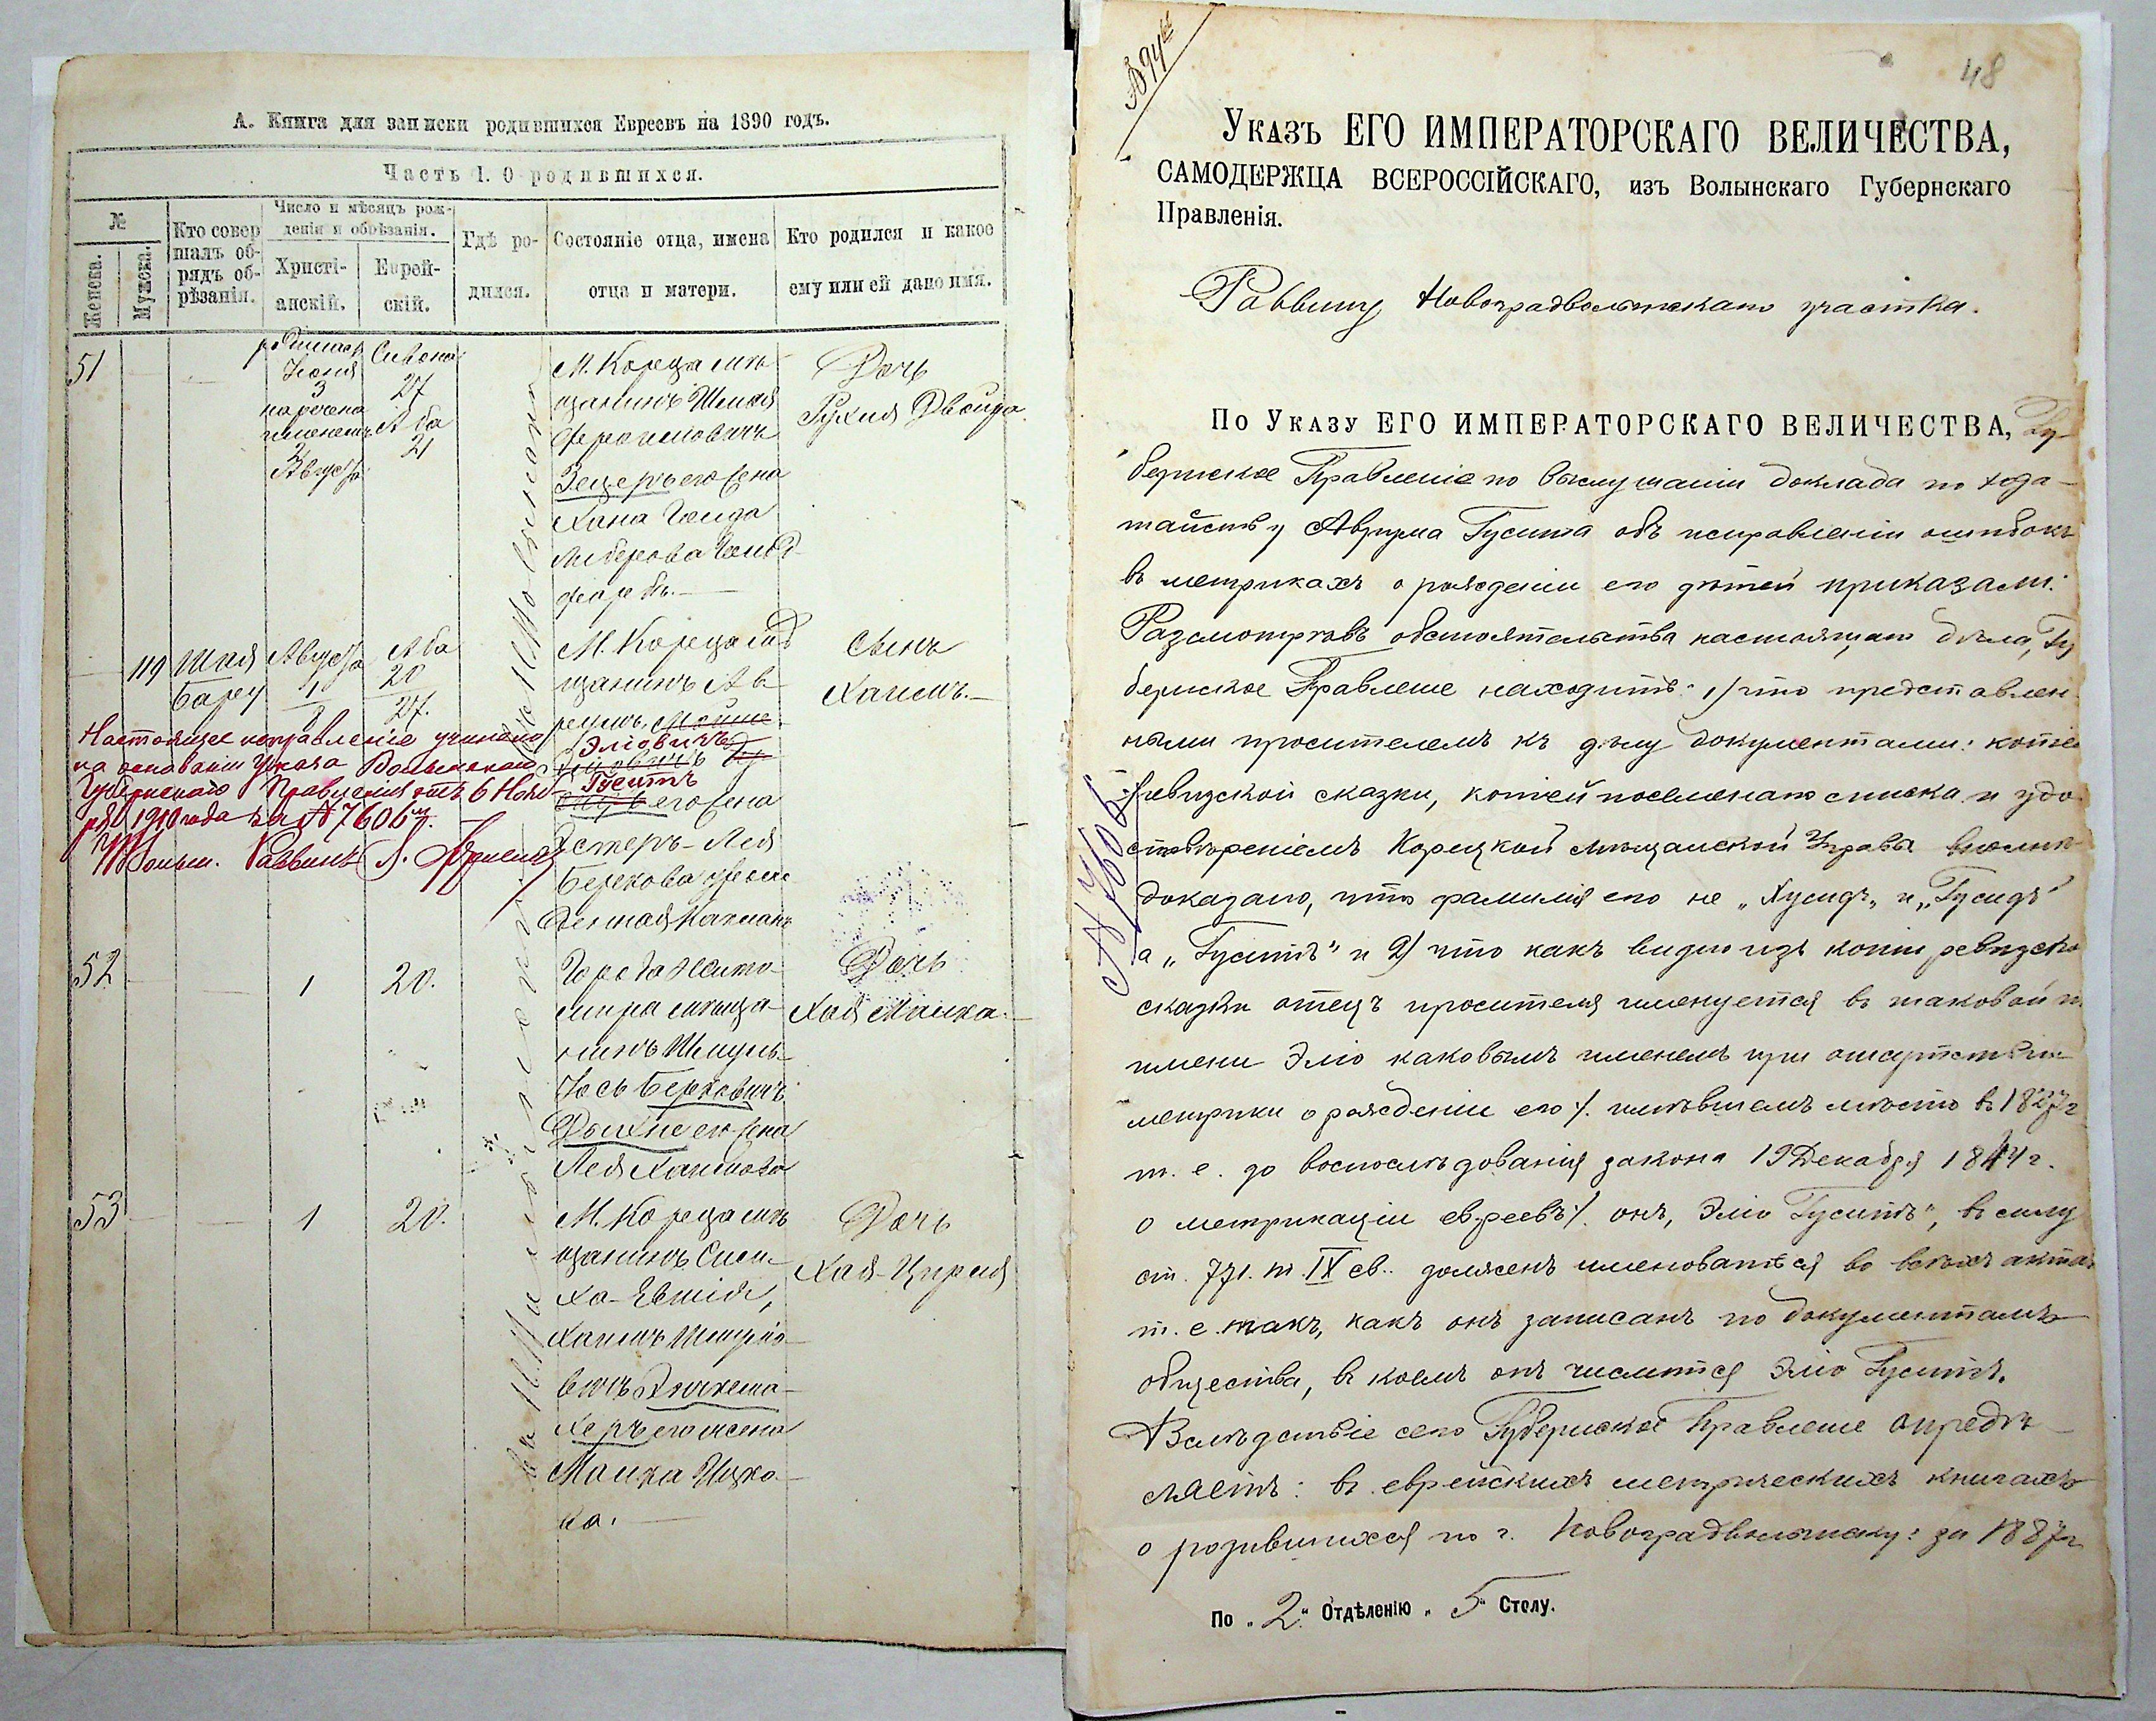 А. Книга для записки родившихся Евреевъ на 1890 годъ.
Часть I. О родившихся.
№
Женска.
Мужска.
Кто совер
шалъ об-
рядъ об-
рѣзанія.
Число и мѣсяцъ рож-
денія и обрѣзанія.
Христі-
анскій.
Еврей-
скій.
Гдѣ ро-
дился.
Состояніе отца, имена
отца и матери.
Кто родился и какое
ему или ей дано имя.
51
Іюня
3
наречена
именемъ
2
Августа
Сивона
27
Аба
21
М. Кореца мѣ-
щанинъ
его жена
Хана
Дочь
Рухля Двойра
119
Шая
Августа
1
8
Аба
20
27.
М. Кореца мѣ
щанинъ Ав-
румъ Мойше
Эліовичъ
Гуситъ
его жена
Эстеръ-Лея
Берекова
Сынъ
Хаимъ.
Настоящее исправленіе учинено
на основаніи Указа Волынскаго
Губернскаго Правленія отъ 6 Нояб-
ря 1910 года за № 7606
Раввинъ
52
1
20.
Города Жито-
мира мѣща-
нинъ Шмуль-
Іось Берковичъ
его жена
Лея Хаимова
Дочь
Хая Малка.
53
1
20.
М. Кореца мѣ
щанинъ Сим-
ха-
Хаимъ
вичъ
херъ его жена
Малка Ицко-
ва.
Дочь
Хая-Цирля
48
Указъ ЕГО ИМПЕРАТОРСКАГО ВЕЛИЧЕСТВА,
САМОДЕРЖЦА ВСЕРОССІЙСКАГО, изъ Волынскаго Губернскаго
Правленія.
Раввину Новоградволынскаго участка.
По Указу ЕГО ИМПЕРАТОРСКАГО ВЕЛИЧЕСТВА, Гу-
бернское Правленіе по выслушаніи доклада по хода-
тайству Аврума Гусита объ исправленіи ошибокъ
въ метрикахъ о рожденіи его дѣтей приказали:
Разсмотрѣвъ обстоятельства настоящаго дѣла, Гу
бернское Правленіе находитъ: 1) что представлен
ными просителемъ къ дѣлу документами: копіей
ревизской сказки, копіей посемейнаго списка и удо
стовѣреніемъ Корецкой мѣщанской Управы вполнѣ
доказано, что фамилія его не „Хусидъ„ и „Гусидъ"
а „Гуситъ" и 2) что какъ видно изъ копіи ревизской
сказки отецъ просителя именуется въ таковой по
имени Эліо каковымъ именемъ при отсутствіи
метрики о рожденіи его /. имѣвшемъ мѣсто въ 1827 г
т. е. до воспослѣдованія закона 19 Декабря 1844 г.
о метрикаціи евреевъ /. онъ, Эліо Гуситъ", въ силу
ст. 771. т. IX св.. долженъ именоваться во всѣхъ актах
т. е. такъ, какъ онъ записанъ по документамъ
общества, въ коемъ онъ числится Эліо Гуситъ.
Вслѣдствіе сего Губернское Правленіе опредѣ-
ляетъ: въ еврейскихъ метрическихъ книгахъ
о родившихся по г. Новоградволынску: за 1887 г
По „2" Отдѣленію „5" Столу.
№ 7606